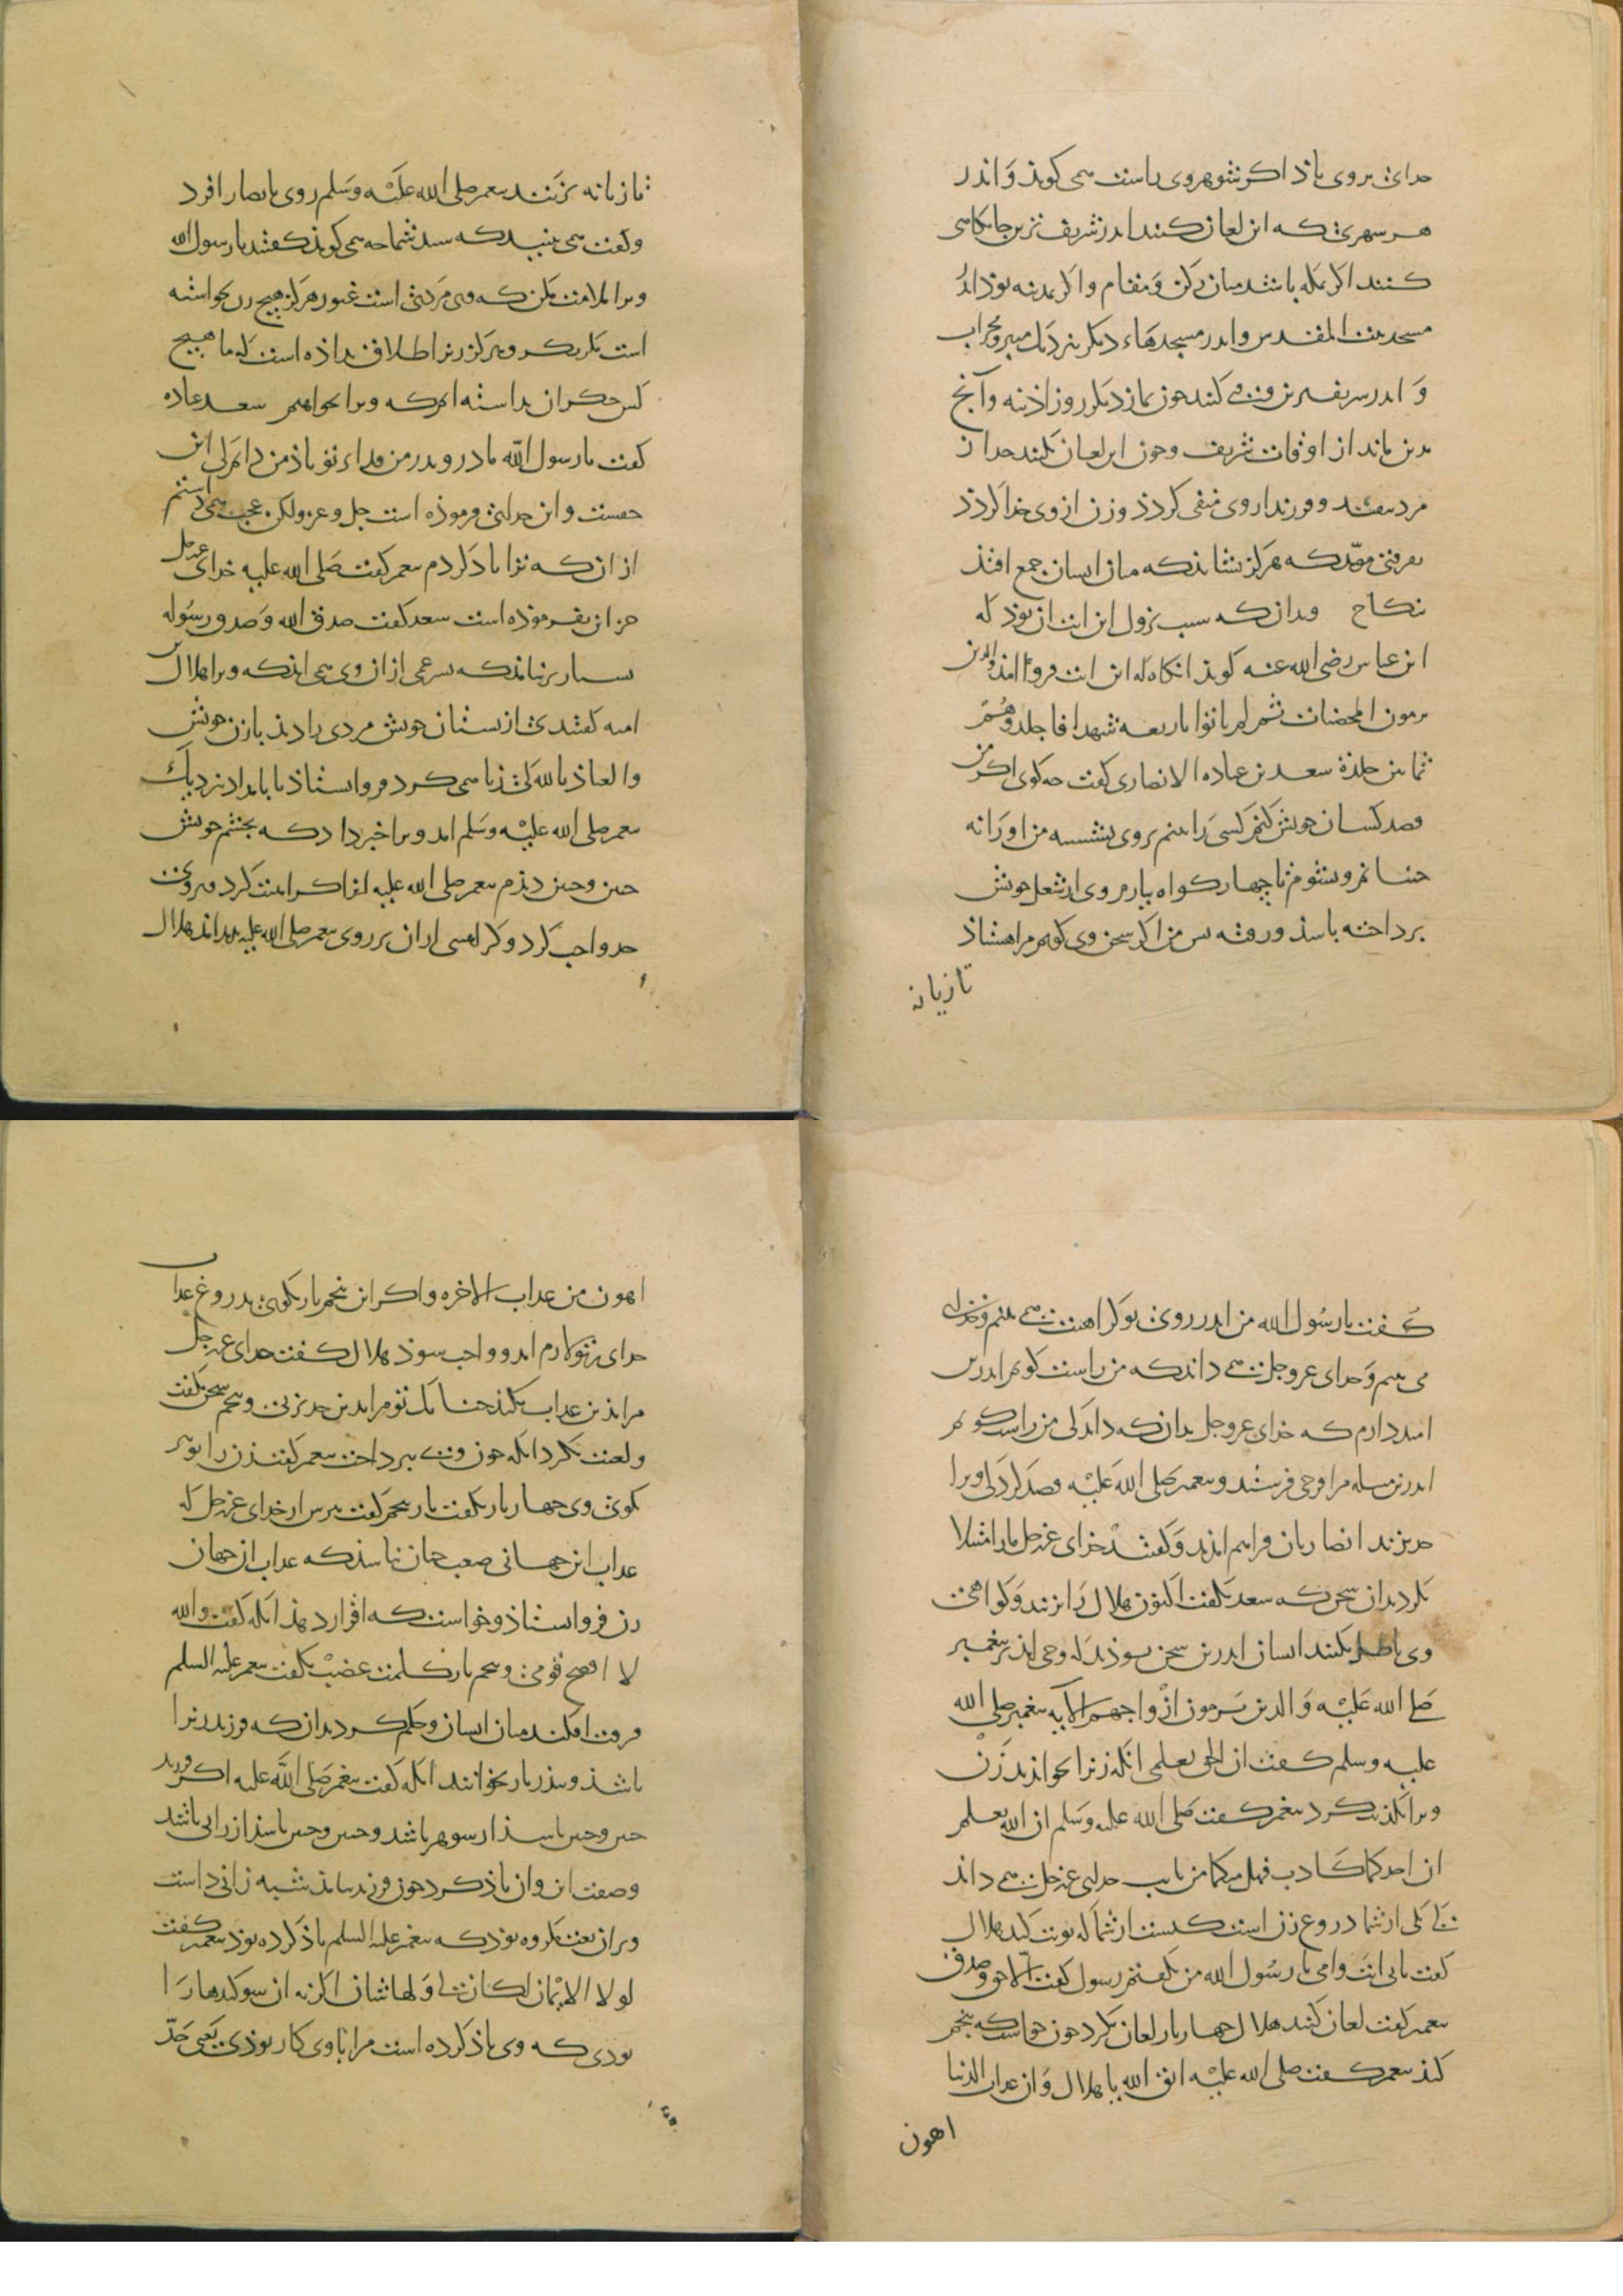 خدای بروی باذ اکر شوهر وی راست می کویذ و اندر
هر شهری که این لعان کنند اندر شریف ترین جایکاهی
کنند اکر بمکه باشد میان رکن و مقام و اکر بمدینه بوذ اندر
مسجد بیت المقدس و اندر مسجدهاء دیکر بنزدیک منبر و محراب
و اندر شریف ترین وقتی کنند جون نماز دیکر روز اذینه و آنج
بدین ماند از اوقات شریف و جون این لعان بکنند حد از
مرد بیفتد و فرزند از وی منفی کردذ و زن از وی جدا کردذ
بفرقتی موبد که هرکز نشاید که میان ایشان جمع افتذ
نکاح و بدانک سبب نزول این ایت ان بوذ که
ابن عباس رضی الله عنه کویذ انکاه که این ایت فروذ امذ والذین
یرمون المحصنات ثم لم یاتوا باربعه شهدا فاجلدوهم
ثمانین جلدة سعد بن عباده الانصاری کفت جه کوی اکر من
قصد کسان خویش کنم کسی را بینم بروی نشسته من او را نه
جنبانم و بشوم تا جهار کواه بیارم وی از شغل خویش
برداخته باشذ و رفته بس من اکر سخن وی کویم مرا هشتاذ
تازیانه
تازیانه بزنند بیغمبر صلی الله علیه وسلم روی بانصار اورد
و کفت می بینید که سید شما جه می کویذ کفتند یا رسول الله
ویرا ملامت مکن که وی مردی است غیور هرکز هیج زن نخواسته
است مکر بکر و هرکز زنرا طلاق نداذه است که ما هیج
کس جکر ان نداشته ایم که ویرا بخواهیم سعد عباده
کفت یا رسول الله مادر و بدر من فداء تو باذ من دانم که این
حقست و این خدای فرموذه است جل و عز ولکن عجب می داشتم
از ان که ترا یاد کردم بیغمبر کفت صلی الله علیه خدای عزوجل
جز ان بفرموذه است سعد کفت صدق الله و صدق رسوله
بسیار برنیامد که بسرعمی از ان وی می امذ که ویرا هلال
امیه کفتندی از بستان خویش مردی را دید با زن خویش
والعیاذ بالله کی زنا می کرد فرو ایستاذ تا بامداد نزدیک
بیغمبر صلی الله علیه وسلم امد و ویرا خبر داد که بجشم خویش
جنین و جنین دیذم بیغمبر صلی الله علیه انرا کراهیت کرد
حد واجب کرد و کراهیتی از ان بر روی بیغمبر صلی الله علیه بدید امد هلال
کفت یا رسول الله من اندر روی تو کراهیت می بینم و خدای
می بینم و خدای عز و جل می داند که من راست کویم اندرین
امید دارم که خدای عز و جل بدان که داند کی من راست کویم
اندرین مسله مرا وحی فرستد و بیغمبر صلی الله علیه قصد کرد کی ویرا
حد بزند انصاریان فراهم امذند و کفتند خدای عز و جل ما را مبتلا
بکرد بدان سخن که سعد بکفت اکنون هلال را بزنند و کواهی
وی باطل بکنند ایشان اندرین سخن بوذند که وحی امذ بر بیغمبر
صلی الله علیه و الذین یرمون ازواجهم الآیه بیغمبر صلی الله
علیه وسلم کفت ان الحق یعلمی انکه زنرا بخواندند زن
ویرا تکذیب کرد بیغمبر کفت صلی الله علیه وسلم ان الله یعلم
ان احدکما کاذب فهل منکما من تایب خدای عز و جل می داند
کی یکی از شما دروغ زن است کیست از شما که توبت کند هلال
کفت بابی انت و امی یا رسول الله من بکفتم رسول کفت الاحق و صدق
بیغمبر کفت لعان کنند هلال جهار بار لعان بکرد جون خواست که بنجم
کند بیغمبر کفت صلی الله علیه اتق الله یا هلال و ان عذاب الدنیا
اهون
اهون من عذاب الاخره و اکر این بنجم بار بکویی بدروغ عذاب
خدای بر تو لازم اید و واجب شوذ هلال کفت خدای عز و جل
مرا بذین عذاب نکند جنانک تو مرا بدین حد نزنی و بنجم سخن بکفت
و لعنت بکرد انکه جون وی ببرداخت بیغمبر کفت زن را تو نیز
بکوی وی جهار بار بکفت بار بنجم کفت بترس از خدای عز و جل که
عذاب این جهانی صعب جنان نباشد که عذاب ان جهان
زن فرو ایستاذ و خواست که اقرار دهذ انکه کفت والله
لا افضح قومی و بنجم بار کلمت غضب بکفت بیغمبر علیه السلم
فرقت افکند میان ایشان و حکم کرد بدان که فرزند زنرا
باشذ و ببذر باز نخوانند انکه کفت بیغمبر صلی الله علیه اکر فرزند
جنین و جنین باشذ از شوهر باشد و جنین و جنین باشذ از زانی باشد
و صفت این و ان یاذ کرد جون فرزند بیامد شبیه زانی داشت
و بر ان نعت مکروه بوذ که بیغمبر علیه السلم یاذ کرده بوذ بیغمبر کفت
لولا الایمان لکان لی و لها شان اکر نه ان سوکندها را
بودی که وی یاذ کرده است مرا با وی کار بوذی یعنی حد